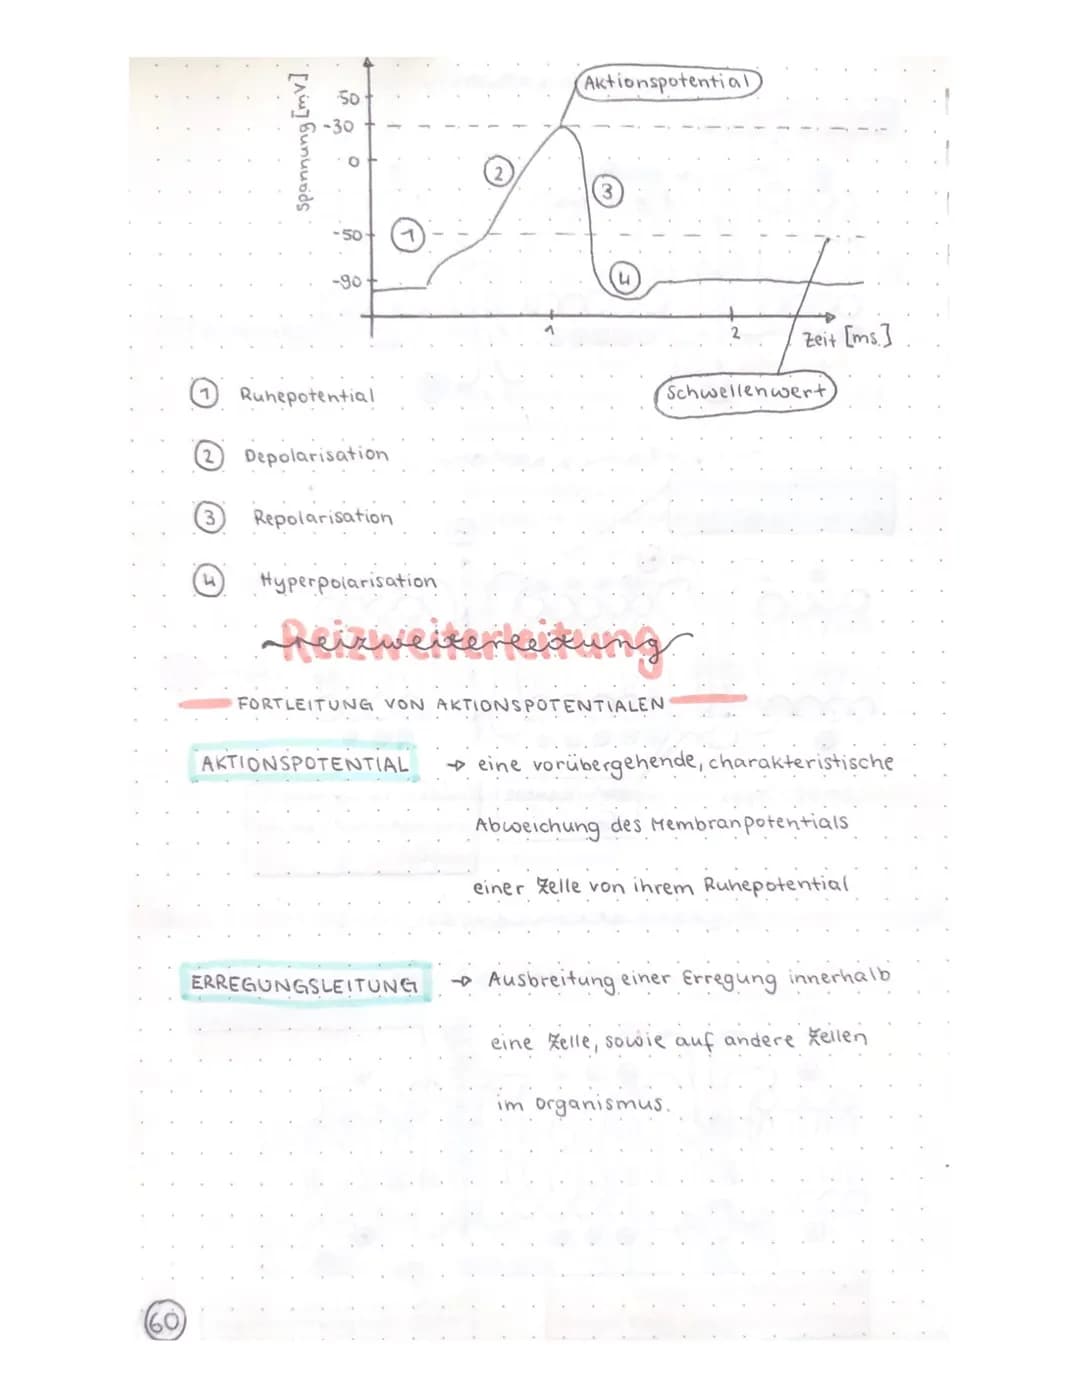 Aktionspotential
Spannung [mV]
50
-30
0
-50
-90
1
2
3
4
1
2
Zeit [ms]
Schwellenwert
1 Ruhepotential
2 Depolarisation
3 Repolarisation
4 Hyperpolarisation
Reizweiterleitung
FORTLEITUNG VON AKTIONSPOTENTIALEN
AKTIONSPOTENTIAL → eine vorübergehende, charakteristische
Abweichung des Membranpotentials
einer Zelle von ihrem Ruhepotential
ERREGUNGSLEITUNG → Ausbreitung einer Erregung innerhalb
eine Zelle, sowie auf andere Zellen
im Organismus.
60